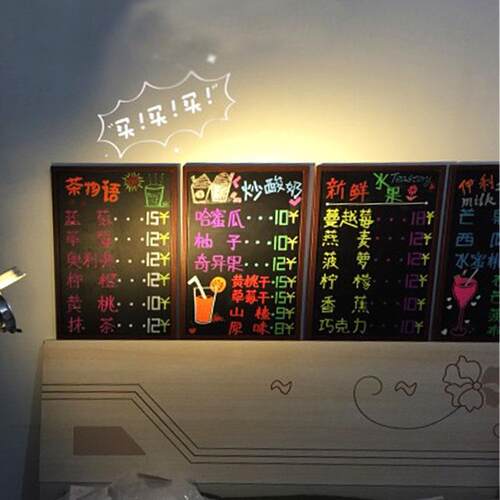 "买!买!买!"
茶物语
蓝莓...15¥
草莓...12¥
奥利奥...12¥
柠檬...12¥
黄桃...10¥
抹茶...12¥
炒酸奶
哈密瓜...10¥
柚子...10¥
奇异果...12¥
黄桃干
草莓干
山楂
原味...8¥
新鲜水果
蔓越莓...18¥
燕麦...12¥
菠萝...12¥
柠檬...12¥
香蕉
巧克力
伊利
milk
芒
西瓜
水蜜桃